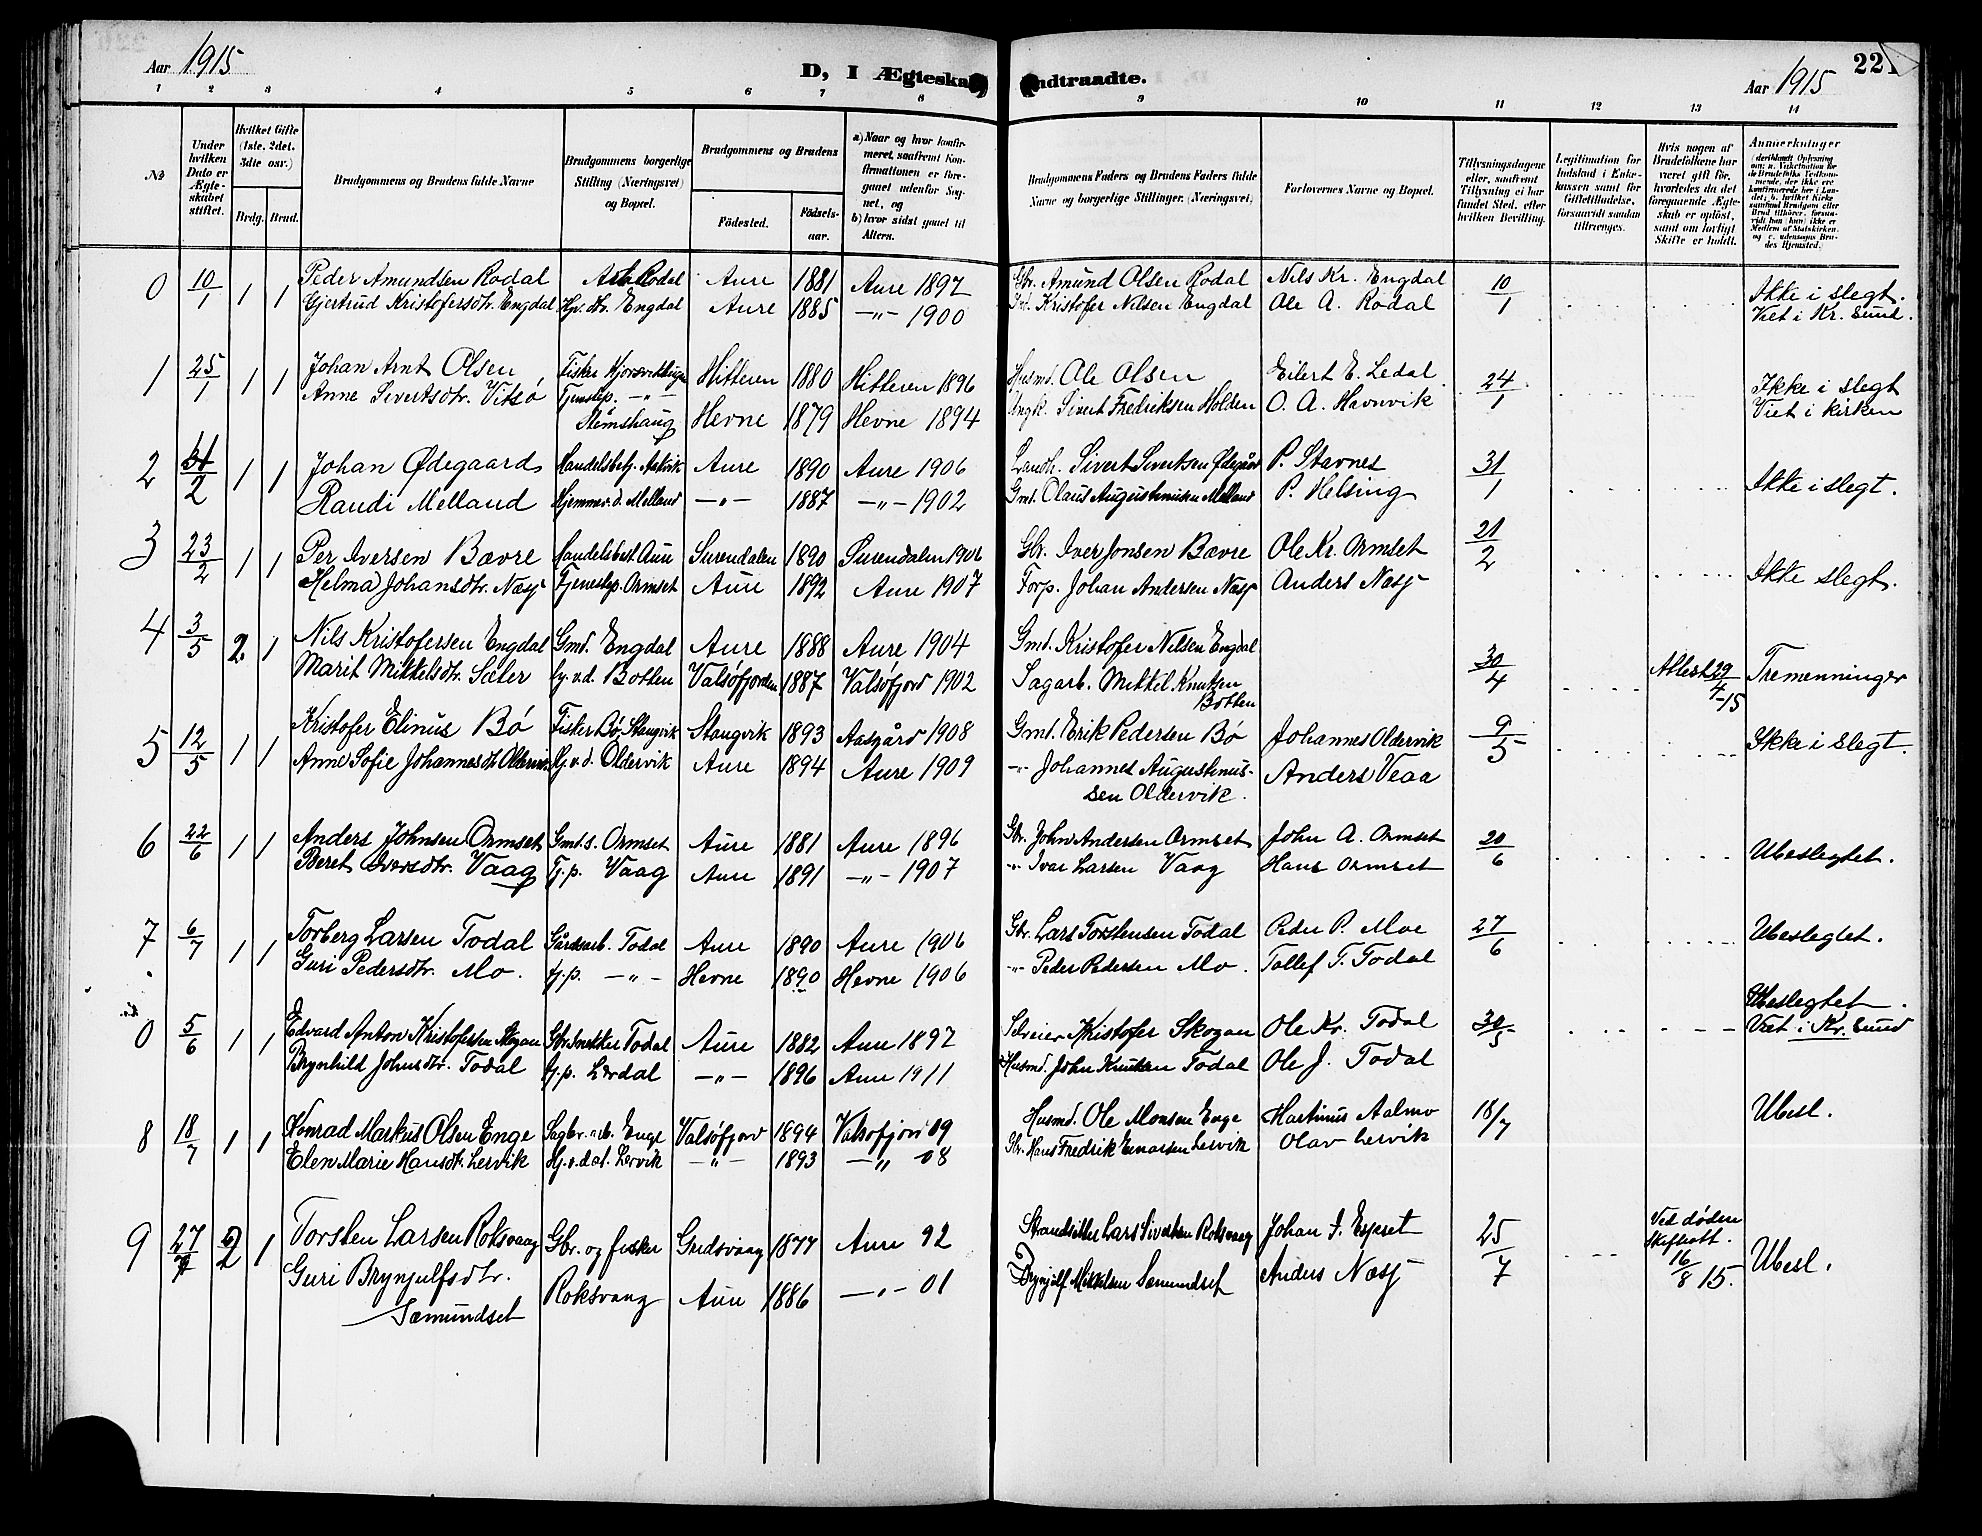 Aar 1915
D, I Ægteska
ndtraadte.
Aar 1915
221
1 2 3 4 5 6 7 8 9 10 11 12 13 14
No
Under hvilken Dato er Ægteskabet stiftet.
Hvilket Gifte (1ste, 2det, 3dte osv.)
Brdg. Brud.
Brudgommens og Brudens fulde Navne
Brudgommens borgerlige Stilling (Næringsvei) og Bopæl.
Brudgommens og Brudens
Födested.
Födsels-aar.
a) Naar og hvor konfirmeret, saafremt Konfirmationen er foregaaet udenfor Sognet, og
b) hvor sidst gaaet til Alters.
Brudgommens Faders og Brudens Faders fulde Navne og borgerlige Stillinger. (Næringsvei)
Forlovernes Navne og Bopæl.
Tillysningsdagene eller, saafremt Tillysning ei har fundet Sted, efter hvilken Bevilling.
Legitimation for Indskud i Enkekassen samt for Giftetilladelse, forsaavidt saadan tiltrænges.
Hvis nogen af Brudefolkene har været gift för, hvorledes da det foregaaende Ægteskab er oplöst, samt om lovligt Skifte er holdt.
Anmærkninger
0 10/1 1 1 Peder Amundsen Rodal Rodal Aure 1881 Aure 1897 Gbr. Amund Olsen Rodal Nils Kr. Engdal 10/1 Ikke i slegt.
Gjertrud Kristofersdtr. Engdal Hjv. dtr. Engdal Aure 1885 -"- 1900 Kristofer Nilsen Engdal Ole A. Rodal Viet i Kr. Sund.
1 25/1 1 1 Johan Arnt Olsen Fisker Hitteren 1880 Hitteren 1896 Husmd. Ole Olsen Eilert E. Ledal 24/1 Ikke i slegt
Anne Sivertsdtr. Vitsø Tjenstep. -"- Stemshaug Hevne 1879 Hevne 1894 Sivert Fredriksen Holden O. A. Havnvik Viet i kirken
2 31/2 1 1 Johan Ødegaard Handelsbetj. Aure 1890 Aure 1906 Landh. Sivert Sivertsen Ødegård P. Stavnes 31/1 Ikke i slegt.
Randi Melland Hjemmev. d. Melland -"- 1887 -"- 1902 Gmd. Olaus Augustinusen Melland P. Helsing
3 23/2 1 1 Per Iversen Bævre Handelsbest. Aure Surendalen 1890 Surendalen 1906 Gbr. Iver Jonsen Bævre Ole Kr. Ormset 21/2 Ikke slegt.
Helma Johansdtr. Næsj Tjenestep. Ormset Aure 1892 Aure 1907 Forp. Johan Andersen Næsj Anders Næsj
4 3/5 2. 1 Nils Kristofersen Engdal Gmd. Engdal Aure 1888 Aure 1904 Gmd. Kristofer Nilsen Engdal 30/4 Attest 29/4-15 Tremenninger
Marit Mikkelsdtr. Sæter hj.v.d. Botten Valsøfjorden 1887 Valsøfjord 1902 Sagarb. Mikkel Knutsen Botten
5 12/5 1 1 Kristofer Elinus Bø Fisker Bø, Stangvik Stangvik 1893 Aasgård 1908 Gmd. Erik Pedersen Bø Johannes Oldervik 9/5 Ikke i slegt.
Anne Sofie Johannesdt Oldervik Hj.v.d. Oldervik Aure 1894 Aure 1909 -"- Johannes Augustinussen Oldervik. Anders Veaa
6 22/6 1 1 Anders Johnsen Ormset Gmds. Ormset Aure 1881 Aure 1896 Gbr. John Andersen Ormset John A. Ormset 20/6 Ubeslegtet.
Beret Iversdtr. Vaag Tj.p. Vaag Aure 1891 -"- 1907 -"- Ivar Larsen Vaag Hans Ormset
7 6/7 1 1 Torberg Larsen Todal Gårdarb. Todal Aure 1890 Aure 1906 Gbr. Lars Torstensen Todal Peder P. Moe 27/6 Ubeslegtet.
Guri Pedersdtr. Mo. tj.p. -"- Hevne 1890 Hevne 1906 -"- Peder Pedersen Mo. Tollef T. Todal
0 5/6 1 1 Edvard Anton Kristofersen Skogan Todal Aure 1882 Aure 1897 Selveier Kristofer Skogan Ole Kr. Todal 30/5 Ubeslegtet. Viet i Kr. Sund
Brynhild Johnsdtr. Todal tj.p. Lerdal -"- 1896 Aure 1911 Husmd. John Knutsen Todal Ole J. Todal
8 18/7 1 1 Konrad Markus Olsen Enge Sagbr. arb. Enge Valsøfjord 1894 Valsøfjord 09 Husmd. Ole Monsen Enge Martinus Aalmo 18/7 Ubesl.
Elen Marie Hansdtr. Lervik Hj.v.dat. Lervik -"- 1893 -"- 08 Gbr. Hans Fredrik Einarsen Lervik Olav Lervik
9 27/7 2 1 Torsten Larsen Roksvaag Gbr. og fisker Gudsvaag 1877 Aure 92 Strandsitter Lars Sivertsen Roksvaag Johan I. Espset 25/7 Ved døden Skifteatt. 16/8 15. Ubesl.
Guri Brynjulfsdtr. Sæmundset Roksvaag Aure 1886 -"- 01 Brynjulf Mikkelsen Sæmundset Anders Næsj